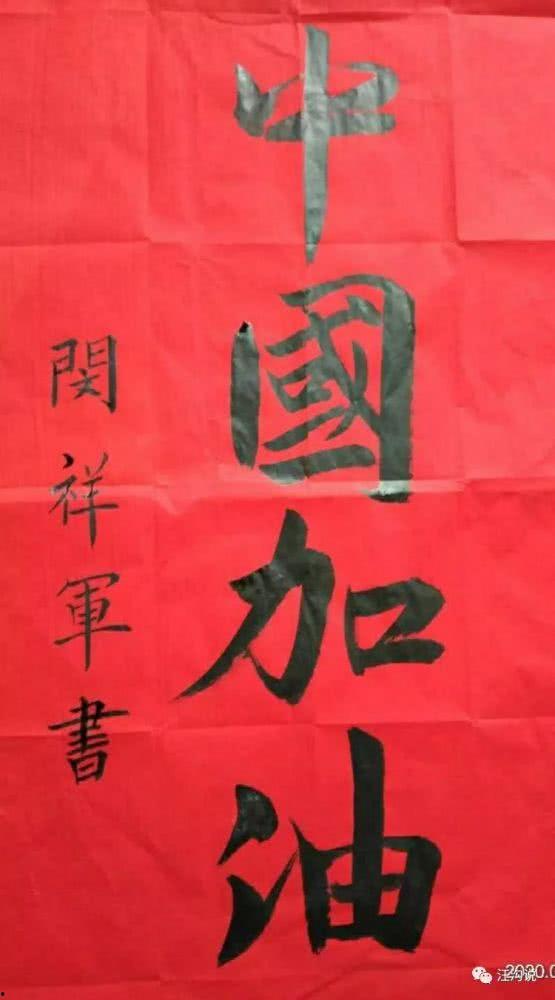 中國加油
閔祥軍書
汪沟说
2020.0